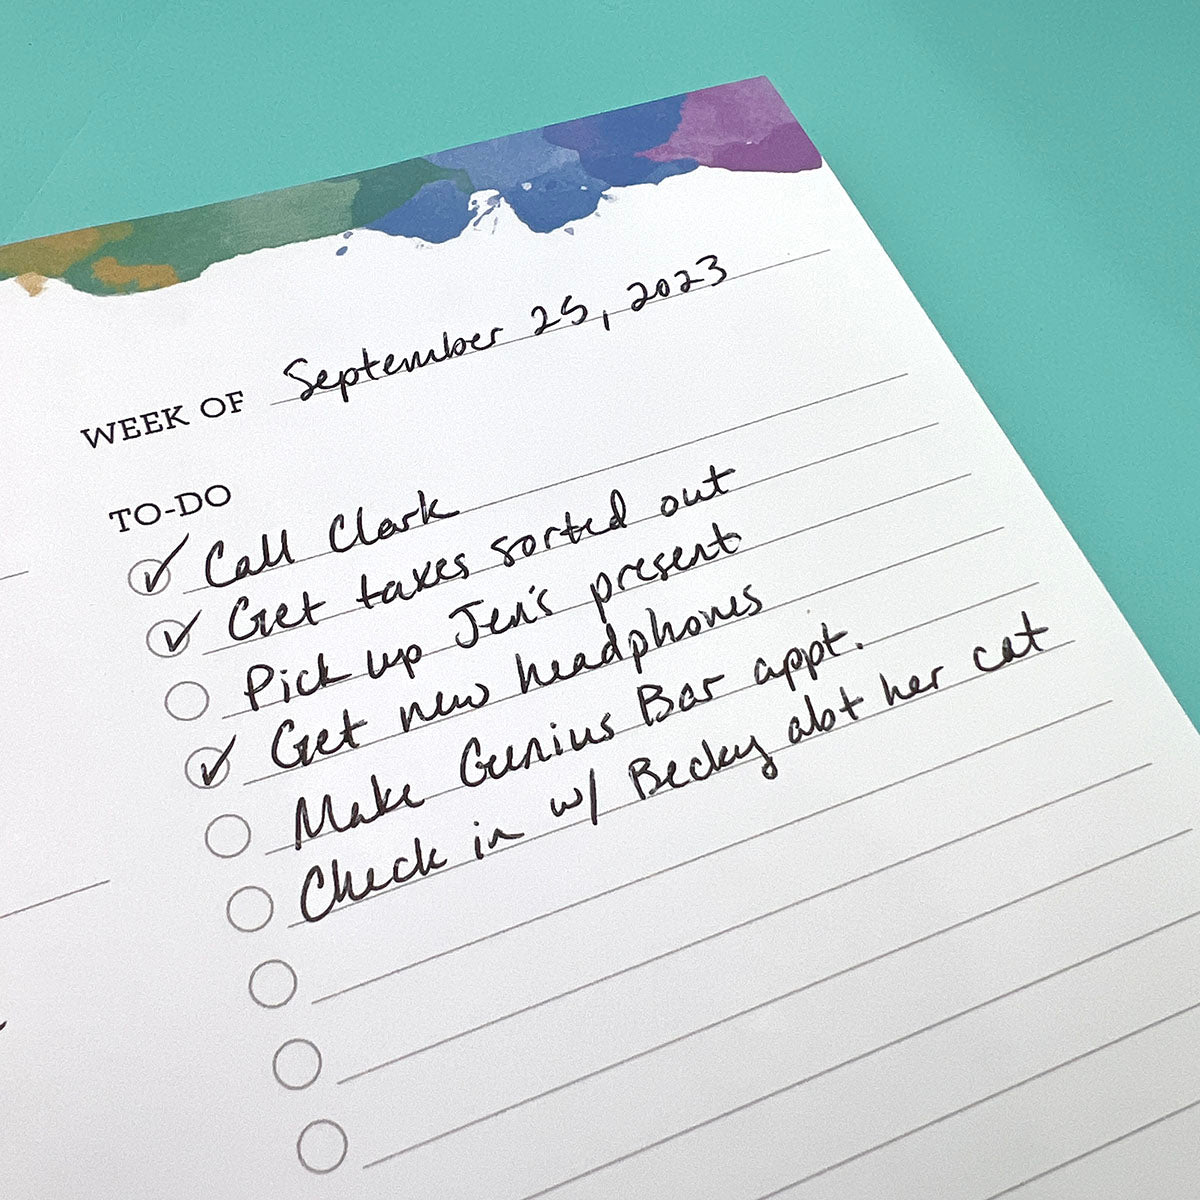 WEEK OF September 25, 2023
TO-DO
Call Clark
Get taxes sorted out
Pick up Jen's present
Get new headphones
Make Genius Bar appt.
Check in w/ Becky abt her cat